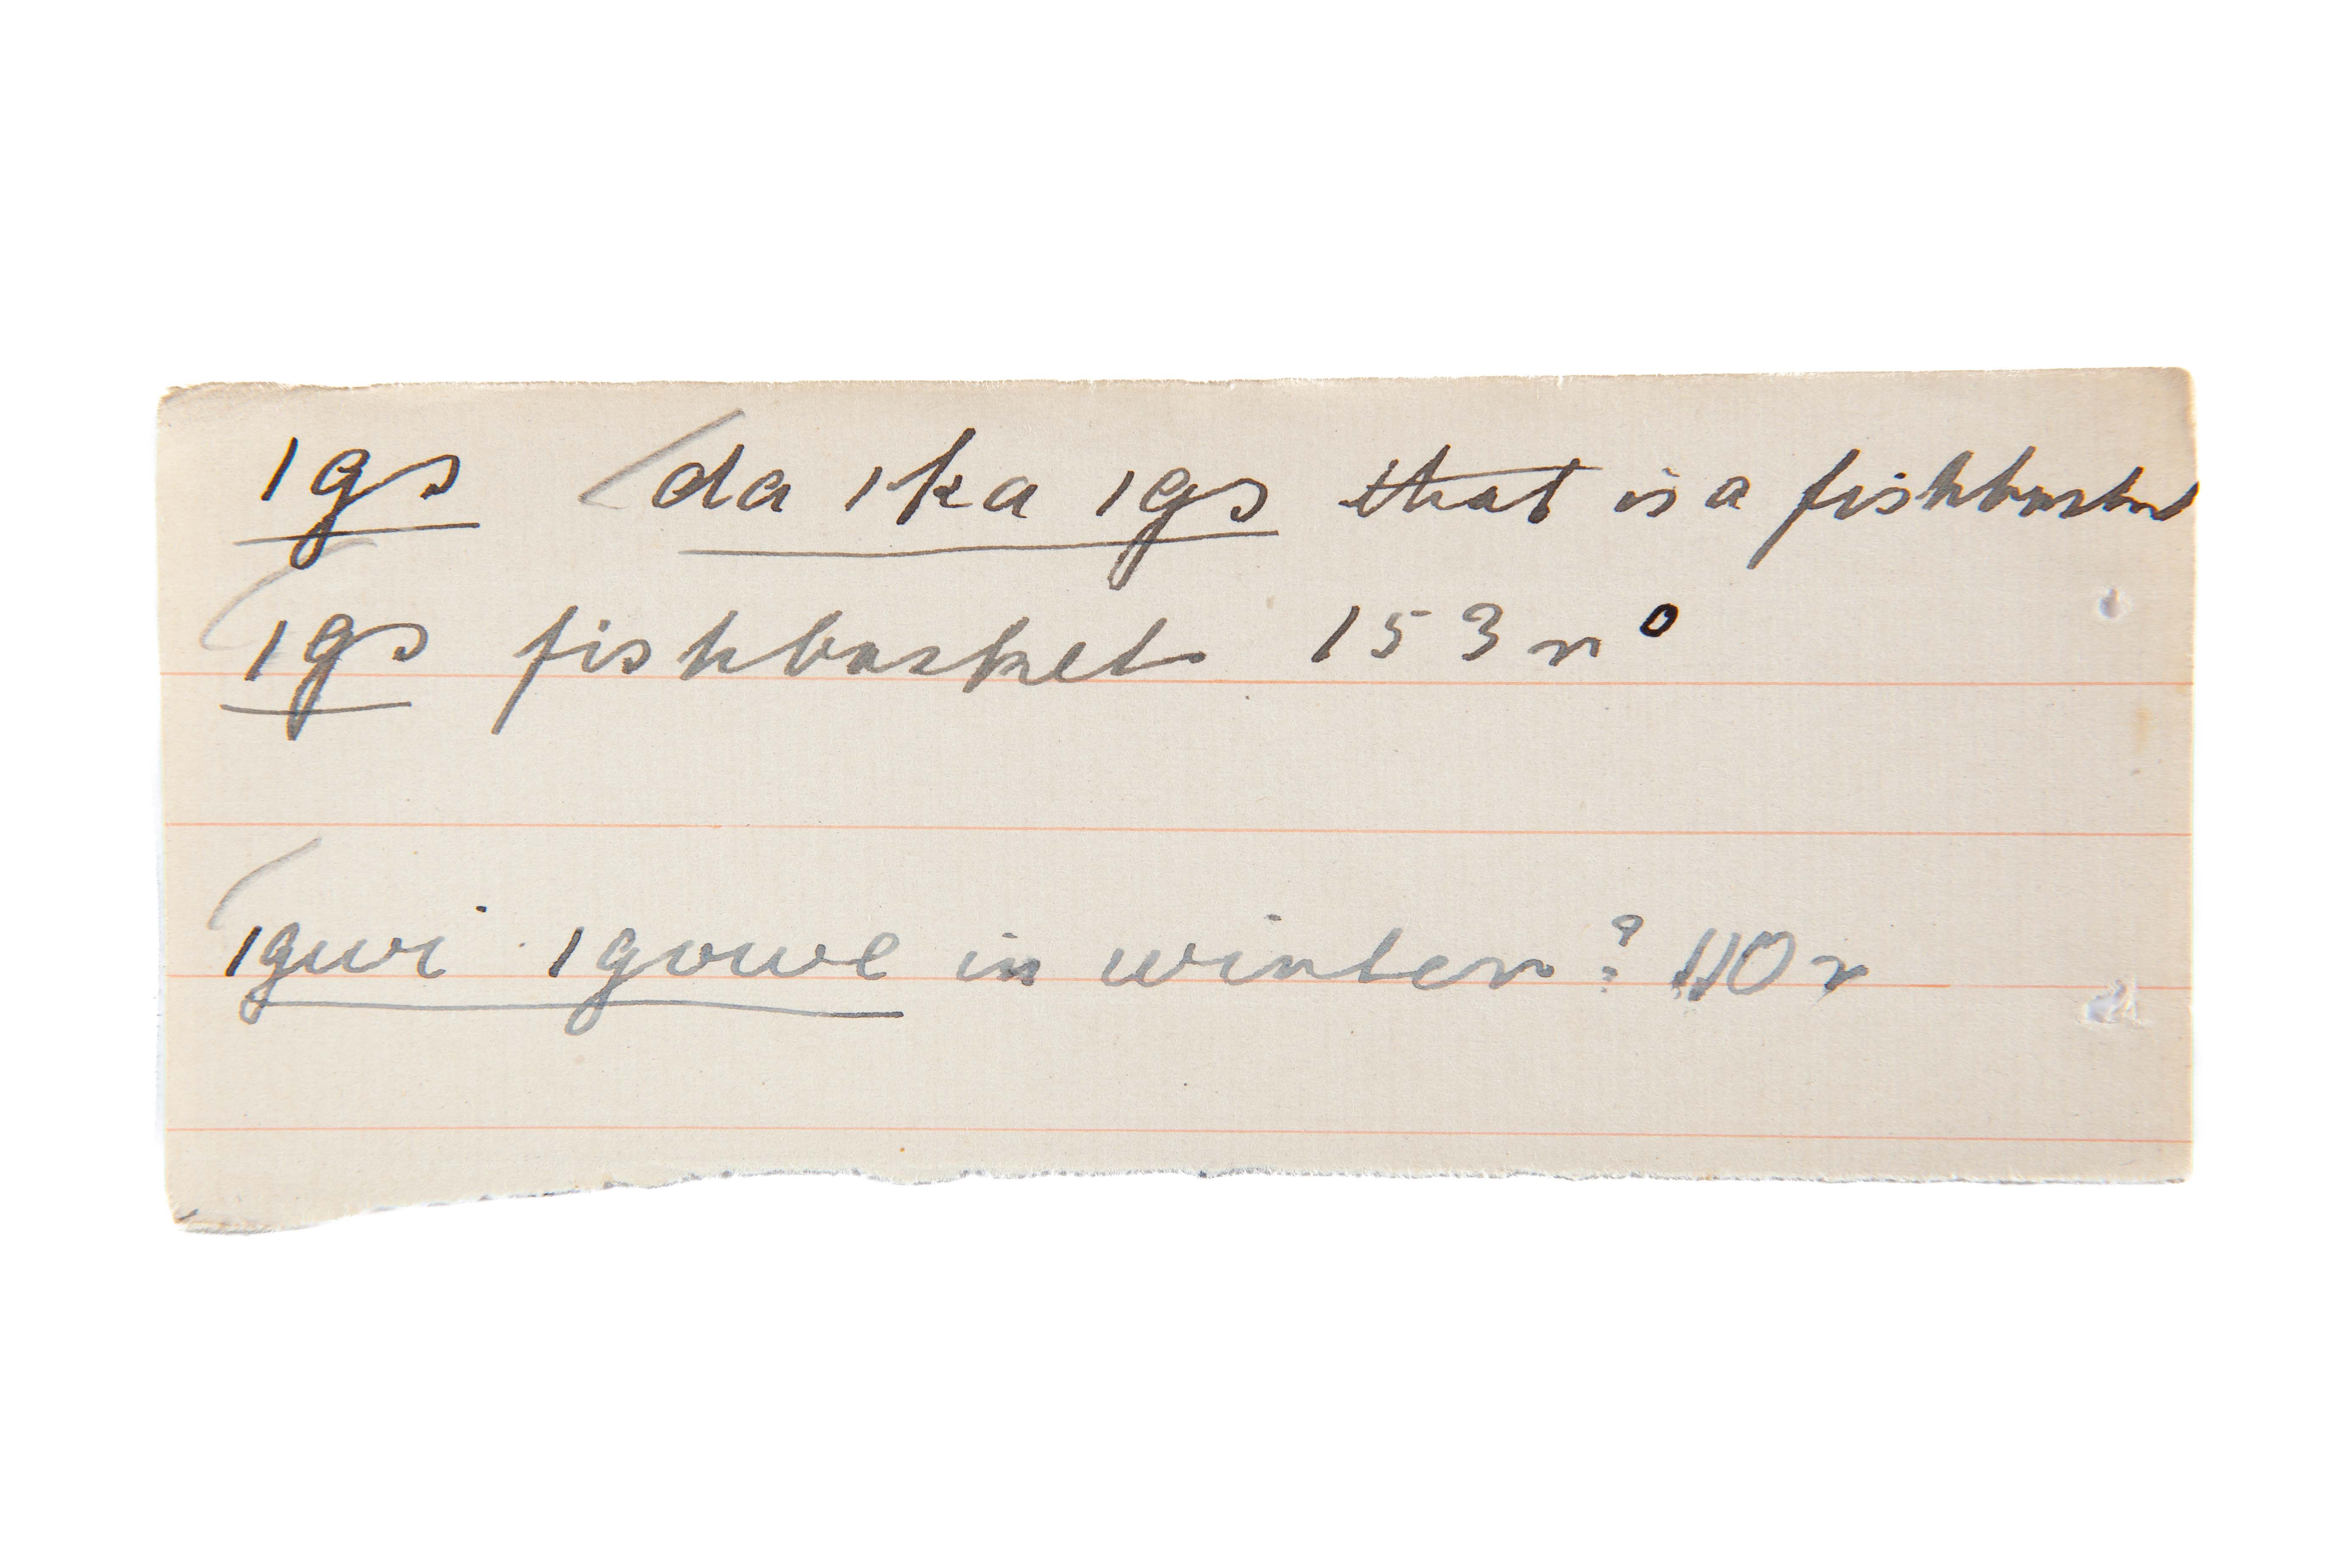 ıgs da ıka ıgs that is a fishbasket
ıgs fishbasket 153 r°
ıgwi ıgowe in winter? 110 r